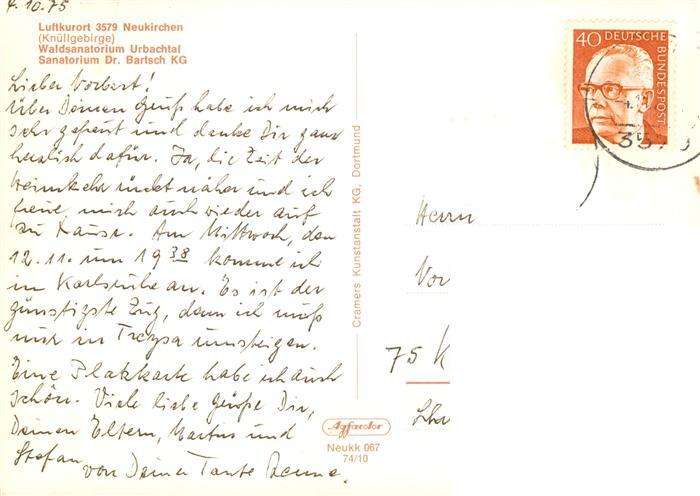 4.10.75
Luftkurort 3579 Neukirchen
(Knüllgebirge)
Waldsanatorium Urbachtal
Sanatorium Dr. Bartsch KG
Lieber Norbert!
Über Deinen Gruß habe ich mich
sehr gefreut und danke Dir ganz
herzlich dafür. Ja, die Zeit der
Heimkehr rückt näher und ich
freue mich auch wieder auf
zu Hause. Am Mittwoch, den
12.11. um 19 38 komme ich
in Karlsruhe an. Es ist der
günstigste Zug, denn ich muß
nur in Treysa umsteigen.
Eine Platzkarte habe ich auch
schon. Viele liebe Grüße Dir,
Deinen Eltern, Markus und
Stefan
von Deiner Tante
Cramers Kunstanstalt KG, Dortmund
Agfacolor
Neukk 067
74/10
40
DEUTSCHE
BUNDESPOST
Herrn
75 K